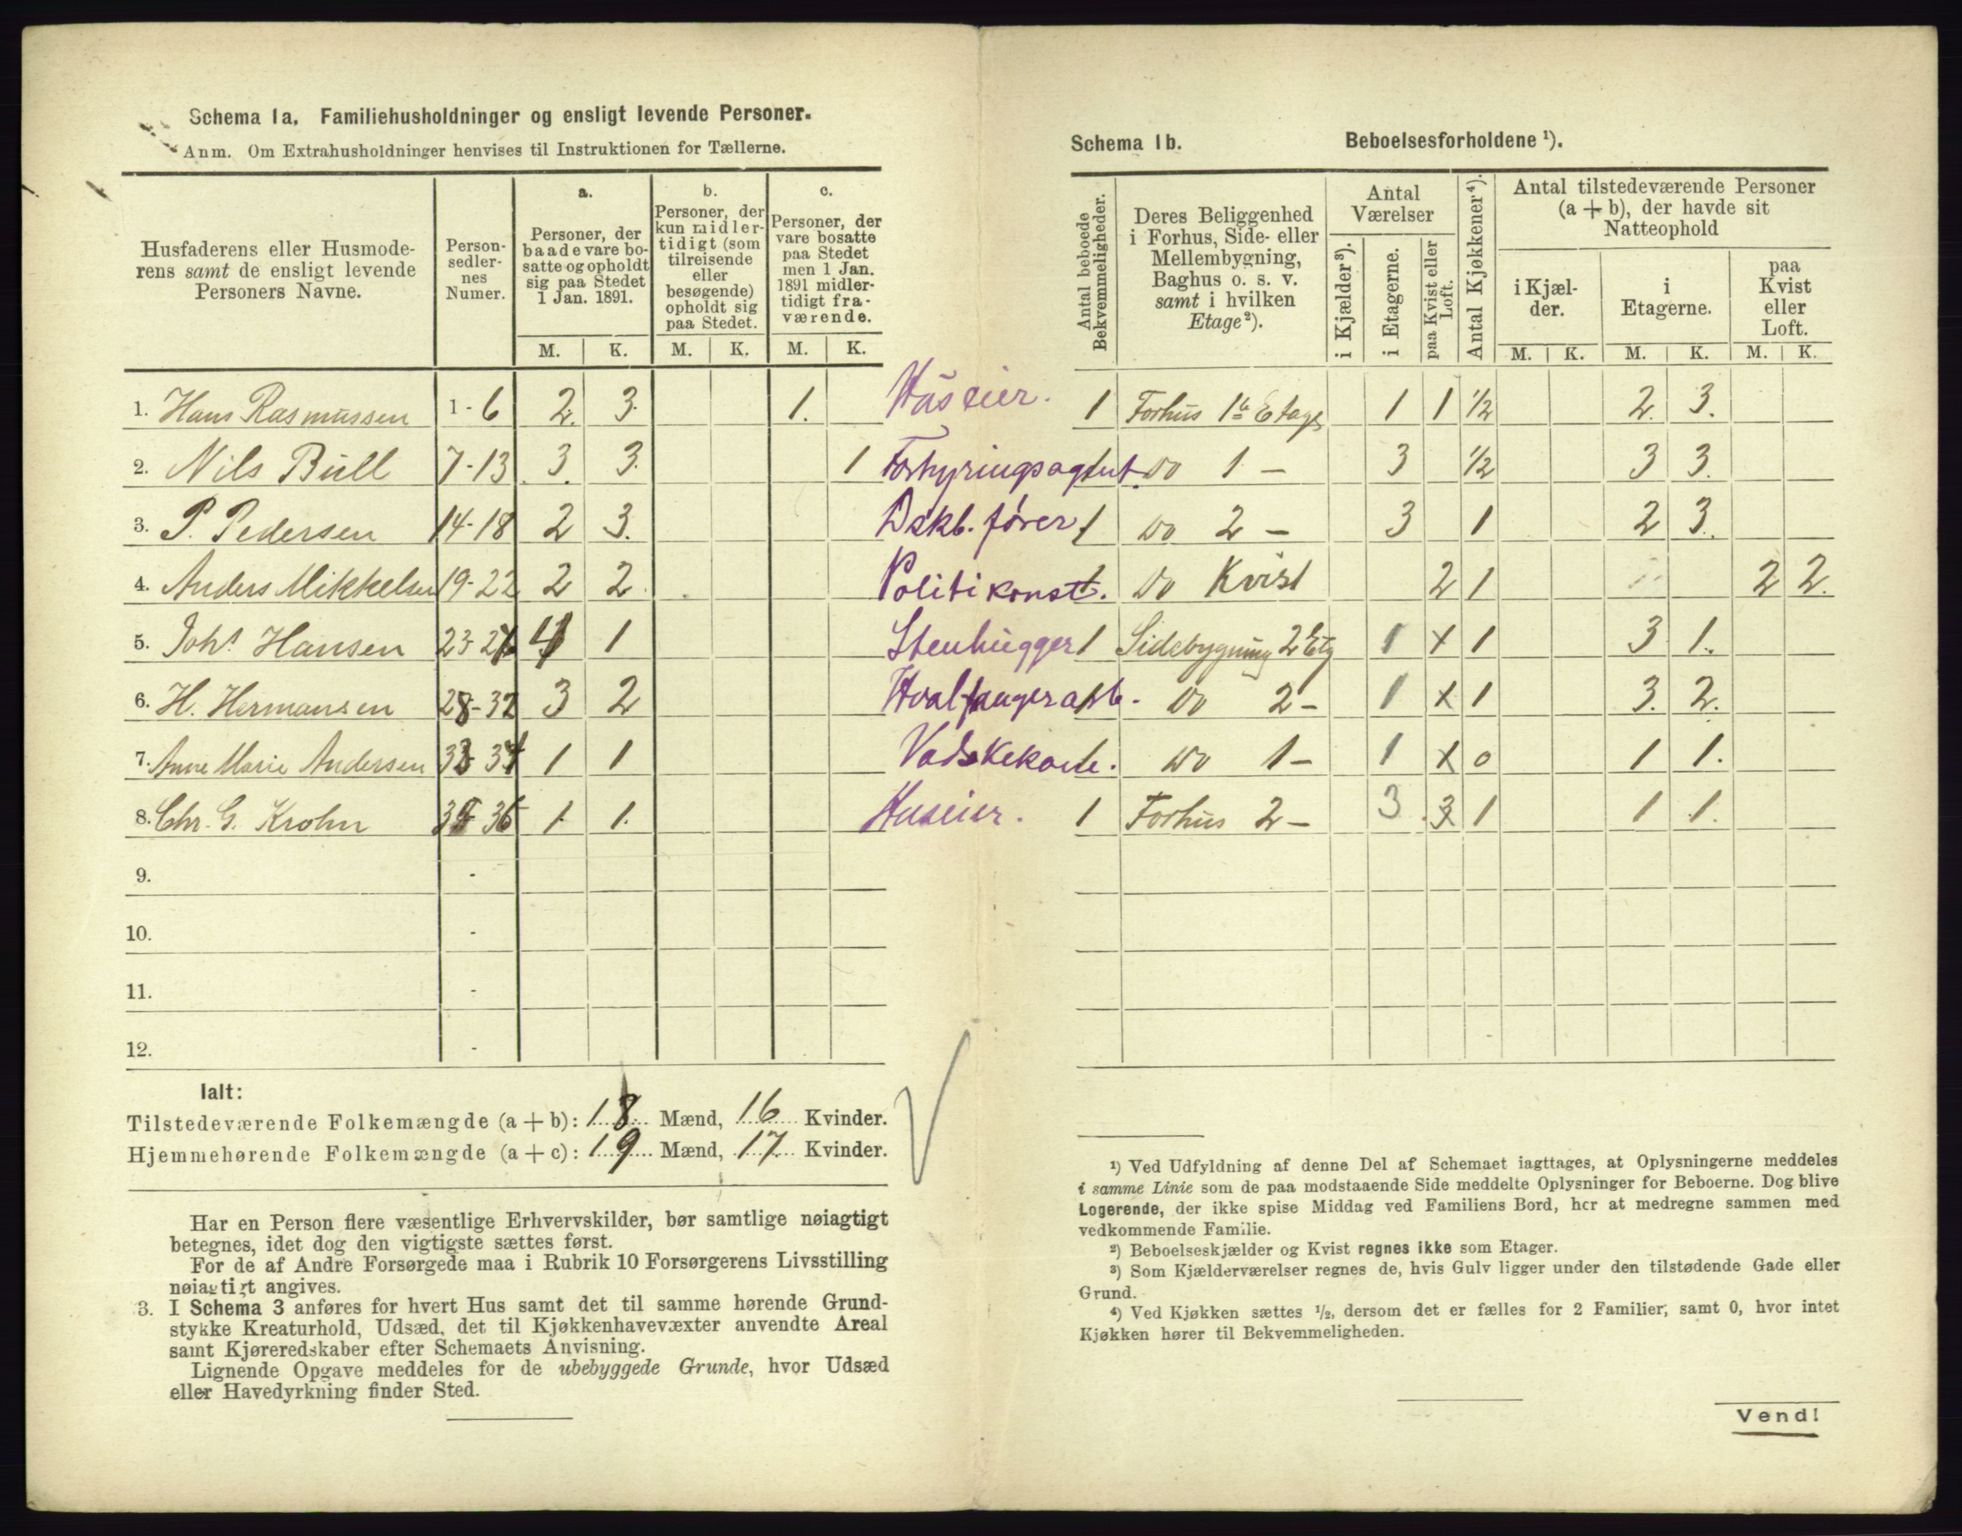 Schema 1a. Familiehusholdninger og ensligt levende Personer.
Anm. Om Extrahusholdninger henvises til Instruktionen for Tællerne.
Husfaderens eller Husmoderens samt de ensligt levende Personers Navne.
Personsedlernes Numer.
a. Personer, der baade vare bosatte og opholdt sig paa Stedet 1 Jan. 1891.
b. Personer, der kun midlertidigt (som tilreisende eller besøgende) opholdt sig paa Stedet.
c. Personer, der vare bosatte paa Stedet men 1 Jan. 1891 midlertidigt fraværende.
M. K. M. K. M. K.
1. Hans Rasmussen 1-6 2. 3. 1. Huseier.
2. Nils Bull 7-13 3. 3. 1 Forhyringsagent.
3. P. Pedersen 14-18 2 3. Dskb. fører
4. Anders Mikkelsen 19-22 2 2 Politikonst.
5. Johs Hansen 23- 1 Stenhugger
6. H. Hermansen 28-32 3 2 Hvalfangerarb.
7. Anne Marie Andersen 33-34 1 1 Vadskekone.
8. Chr. G. Krohn 35-36 1. 1. Huseier.
9. -
10. -
11. -
12. -
Ialt:
Tilstedeværende Folkemængde (a + b): 18 Mænd, 16 Kvinder.
Hjemmehørende Folkemængde (a + c): 19 Mænd, 17 Kvinder.
Har en Person flere væsentlige Erhvervskilder, bør samtlige nøiagtigt
betegnes, idet dog den vigtigste sættes først.
For de af Andre Forsørgede maa i Rubrik 10 Forsørgerens Livsstilling
nøiagtigt angives.
3. I Schema 3 anføres for hvert Hus samt det til samme hørende Grund-
stykke Kreaturhold, Udsæd, det til Kjøkkenhavevæxter anvendte Areal
samt Kjøreredskaber efter Schemaets Anvisning.
Lignende Opgave meddeles for de ubebyggede Grunde, hvor Udsæd
eller Havedyrkning finder Sted.
Schema 1b. Beboelsesforholdene ¹).
Antal beboede Bekvemmeligheder.
Deres Beliggenhed i Forhus, Side- eller Mellembygning, Baghus o. s. v. samt i hvilken Etage²).
Antal Værelser
i Kjælder³).
i Etagerne.
paa Kvist eller Loft.
Antal Kjøkkener⁴).
Antal tilstedeværende Personer (a + b), der havde sit Natteophold
i Kjælder. i Etagerne. paa Kvist eller Loft.
M. K. M. K. M. K.
1 Forhus 1te Etage 1 1 1/2 2. 3.
1 do 1 - 3 1/2 3 3.
1 do 2 - 3 1 2 3.
1 do Kvist 2 1 2 2.
1 Sidebygning 2 Etg 1 x 1 3 1.
1 do 2 - 1 x 1 3. 2.
1 do 1 - 1 x 0 1 1.
1 Forhus 2 - 3 3 1 1 1.
¹) Ved Udfyldning af denne Del af Schemaet iagttages, at Oplysningerne meddeles
i samme Linie som de paa modstaaende Side meddelte Oplysninger for Beboerne. Dog blive
Logerende, der ikke spise Middag ved Familiens Bord, her at medregne sammen med
vedkommende Familie.
²) Beboelseskjælder og Kvist regnes ikke som Etager.
³) Som Kjælderværelser regnes de, hvis Gulv ligger under den tilstødende Gade eller
Grund.
⁴) Ved Kjøkken sættes ¹/₂, dersom det er fælles for 2 Familier, samt 0, hvor intet
Kjøkken hører til Bekvemmeligheden.
Vend!